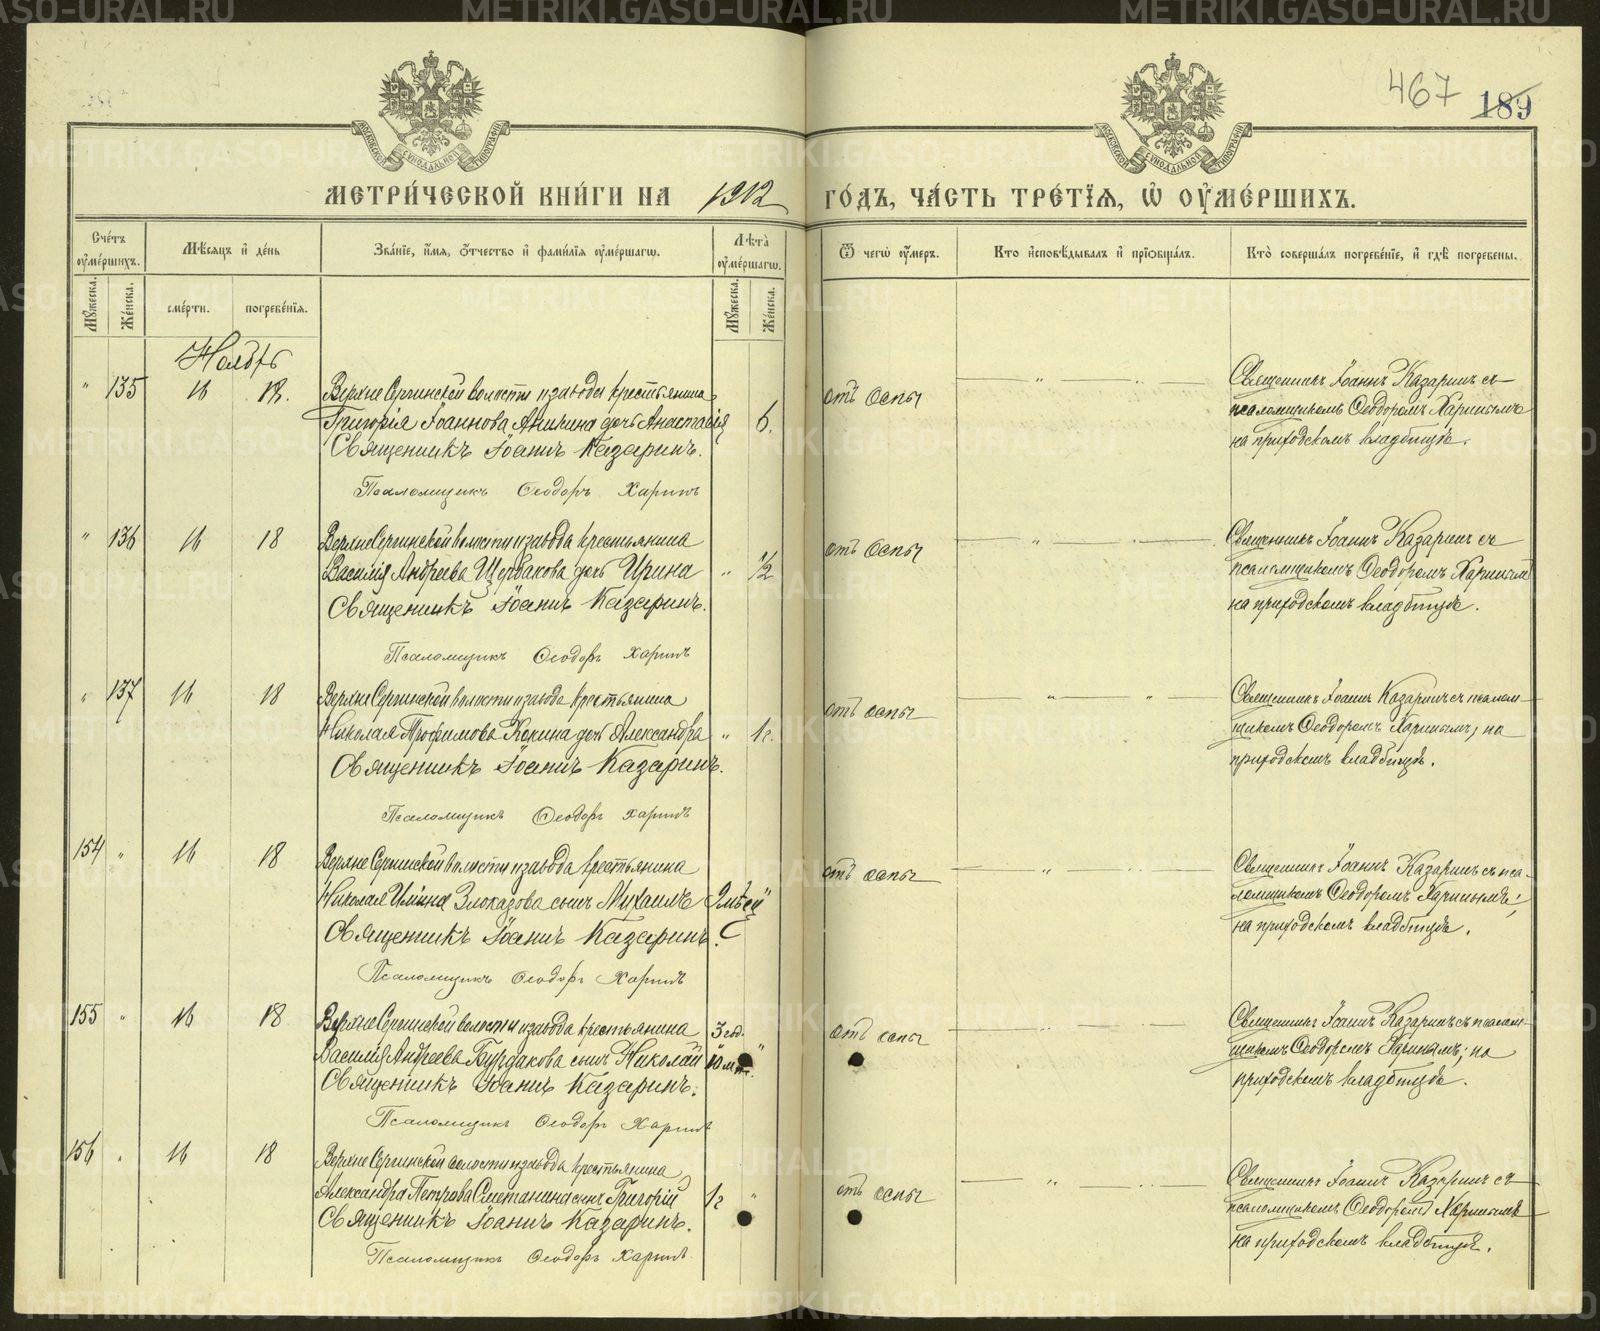 467
189
МОСКОВСКОЙ СѴНОДАЛЬНОЙ ТИПОГРАФІИ
МОСКОВСКОЙ СѴНОДАЛЬНОЙ ТИПОГРАФІИ
МЕТРИ́ЧЕСКОЙ КНИ́ГИ НА 1912 ГО́ДЪ, ЧА́СТЬ ТРЕ́ТІЯ, Ѡ҆ ОУ҆МЕ́РШИХЪ.
Сче́тъ оу҆ме́ршихъ.
Мѣ́сяцъ и҆ де́нь
Зва́ніе, и҆́мя, ѻ҆́тчество и҆ фами́лія оу҆ме́ршагѡ.
Лѣта̀ оу҆ме́ршагѡ.
Ѿ чегѡ̀ оу҆́меръ.
Кто̀ и҆сповѣ́дывалъ и҆ прїѡбща́лъ.
Кто̀ соверша́лъ погребе́ніе, и҆ гдѣ̀ погребены.
Му́жеска. Же́нска.
сме́рти. погребе́нія.
Му́жеска. Же́нска.
Ноябрь
" 135 16 18. Верхне Сергинской волости и завода крестьянина
Григорія Іоаннова Аникина дочь Анастасія 6.
Священникъ Іоаннъ Казаринъ.
Псаломщикъ Ѳеодоръ Харинъ
отъ оспы
Священникъ Іоаннъ Казаринъ съ
псаломщикомъ Ѳеодоромъ Харинымъ
на приходскомъ кладбищѣ.
" 136 16 18 Верхне Сергинской волости и завода крестьянина
Василія Андреева Щербакова дочь Ирина " 1/2
Священникъ Іоаннъ Казаринъ.
Псаломщикъ Ѳеодоръ Харинъ
отъ оспы
Священникъ Іоаннъ Казаринъ съ
псаломщикомъ Ѳеодоромъ Харинымъ
на приходскомъ кладбищѣ.
" 137 16 18 Верхне Сергинской волости и завода крестьянина
Николая Трофимова Кокина дочь Александра " 1 г.
Священникъ Іоаннъ Казаринъ.
Псаломщикъ Ѳеодоръ Харинъ
отъ оспы
Священникъ Іоаннъ Казаринъ съ псалом-
щикомъ Ѳеодоромъ Харинымъ, на
приходскомъ кладбищѣ.
154 " 16 18 Верхне Сергинской волости и завода крестьянина
Николая Ильина Злоказова сынъ Михаилъ 9 мѣсяц "
Священникъ Іоаннъ Казаринъ.
Псаломщикъ Ѳеодоръ Харинъ
отъ оспы
Священникъ Іоаннъ Казаринъ съ пса-
ломщикомъ Ѳеодоромъ Харинымъ;
на приходскомъ кладбищѣ.
155 " 16 18 Верхне Сергинской волости и завода крестьянина 3 год.
Василія Андреева Бурдакова сынъ Николай 10 м. "
Священникъ Іоаннъ Казаринъ.
Псаломщикъ Ѳеодоръ Харинъ
отъ оспы
Священникъ Іоаннъ Казаринъ съ псалом-
щикомъ Ѳеодоромъ Харинымъ; на
приходскомъ кладбищѣ.
156 " 16 18 Верхне Сергинской волости и завода крестьянина
Александра Петрова Сметанина сынъ Григорій 1 г "
Священникъ Іоаннъ Казаринъ.
Псаломщикъ Ѳеодоръ Харинъ.
отъ оспы
Священникъ Іоаннъ Казаринъ съ
псаломщикомъ Ѳеодоромъ Харинымъ
на приходскомъ кладбищѣ.
METRIKI.GASO-URAL.RU